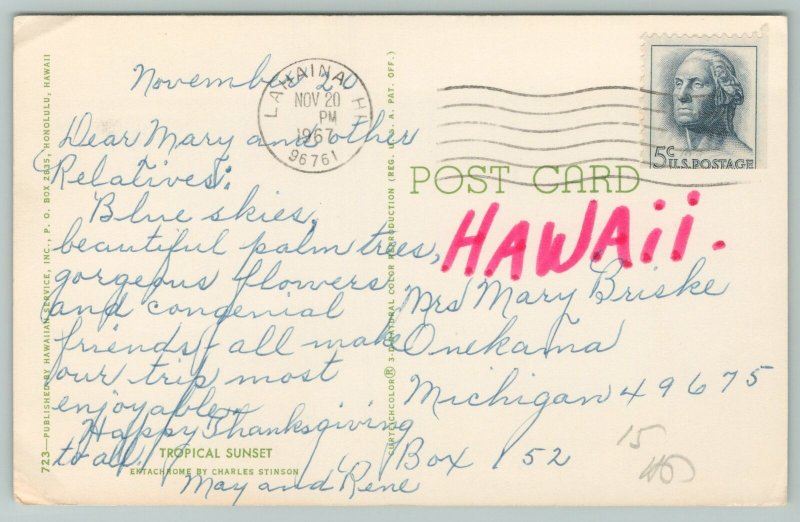 November 20
Dear Mary and other
Relatives:
Blue skies,
beautiful palm trees,
gorgeous flowers
and congenial
friends all make
our trip most
enjoyable.
Happy Thanksgiving
to all.
May and Rene
TROPICAL SUNSET
EKTACHROME BY CHARLES STINSON
723—PUBLISHED BY HAWAIIAN SERVICE, INC., P. O. BOX 2835, HONOLULU, HAWAII
CURTEICHCOLOR® 3-D NATURAL COLOR REPRODUCTION (REG. U.S.A. PAT. OFF.)
LAHAINA, HI
NOV 20
PM
1967
96761
5c U.S. POSTAGE
POST CARD
HAWAii.
Mrs Mary Briske
Onekama
Michigan 49675
Box 152
15